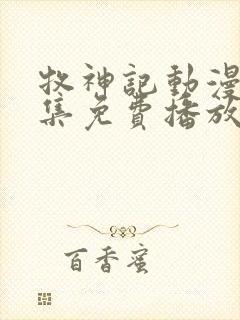 牧神記動漫
集免費播放
百香蜜